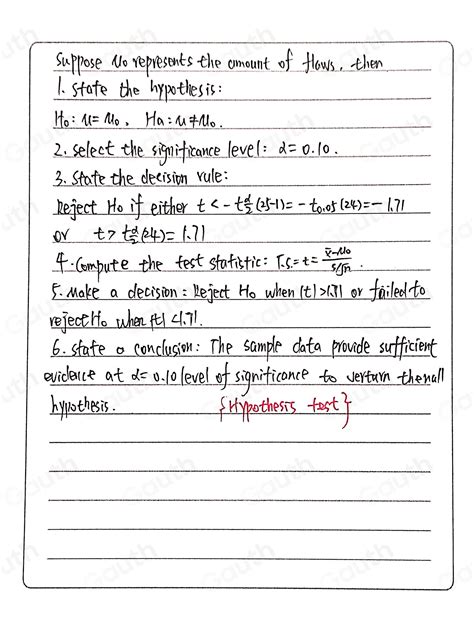 Suppose u0 represents the amount of flows, then
1. State the hypothesis:
H0: u=u0. Ha: u≠u0.
2. Select the significance level: α=0.10.
3. State the decision rule:
Reject H0 if either t<-tα/2(25-1)=-t0.05(24)=-1.71
or t>tα/2(24)=1.71
4. Compute the test statistic: T.s.=t=(x̄-u0)/(s/√n).
5. Make a decision: Reject H0 when |t|>1.71 or failed to
reject H0 when |t|<1.71.
6. State a conclusion: The sample data provide sufficient
evidence at α=0.10 level of significance to verturn the null
hypothesis. {Hypothesis test}
Gauth